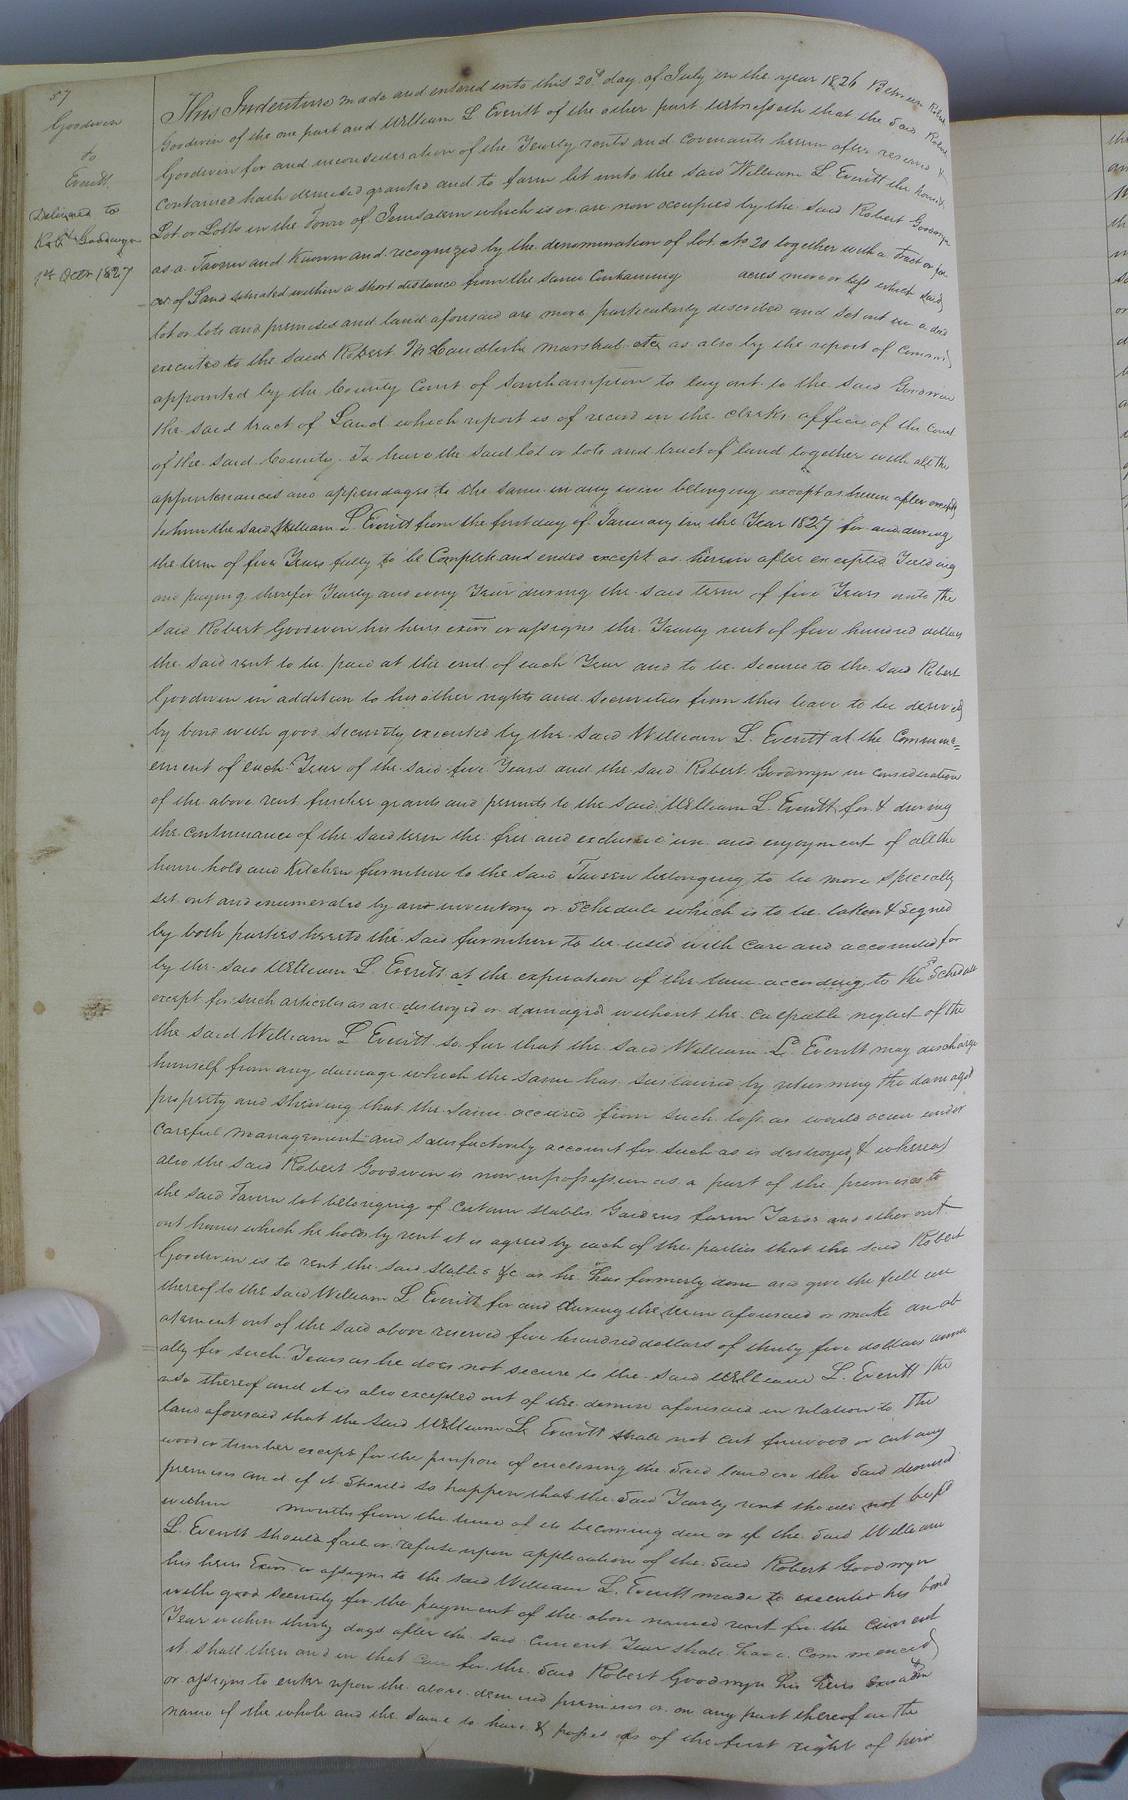 57
Goodwin
to
Everitt.
Delivered to
Robt Goodwyn
1st Octr 1827
This Indenture made and entered into this 20d day of July in the year 1826 Between Robert
Goodwin of the one part and William L Everitt of the other part witnesseth that the said Robert
Goodwin for and in consideration of the Yearly rents and covenants herein after reserved &
contained hath demised granted and to farm let unto the said William L. Everitt the houses
Lot or Lotts in the Town of Jerusalem which is or are now occupied by the said Robert Goodwyn
as a Tavern and Known and recognized by the denomination of lot No 20 together with a tract or par
cel of Land situated within a short distance from the same Containing acres more or less which said
lot or lots and premises and land aforesaid are more particularly described and set out in a deed
executed to the said Robert McCandlish Marshal &c as also by the report of Commrs
appointed by the County Court of Southampton to lay out to the said Goodwin
the said tract of Land which report is of record in the clerks office of the Court
of the said County. To have the said lot or lots and tract of land together with all the
appurtenances and appendages to the same in any wise belonging except as herein after excepted
to him the said William L. Everitt from the first day of January in the Year 1827 for and during
the term of five Years fully to be Complete and ended except as herein after excepted Yielding
and paying therefor Yearly and every Year during the said term of five Years unto the
said Robert Goodwin his heirs exors or assigns the Yearly rent of five hundred dollars
the said rent to be paid at the end of each Year and to be secured to the said Robert
Goodwin in addition to his other rights and securities from this lease to be derived
by bond with good security executed by the said William L. Everitt at the Commenc=
ement of each Year of the said five Years and the said Robert Goodwyn in consideration
of the above rent further grants and permits to the said William L. Everitt for & during
the continuance of the said term the free and exclusive use and enjoyment of all the
house hold and Kitchen furniture to the said Tavern belonging to be more specially
set out and enumerated by an inventory or Schedule which is to be taken & signed
by both parties hereto the said furniture to be used with care and accounted for
by the said William L. Everitt at the expiration of the time according to the sd Schedule
except for such articles as are destroyed or damaged without the culpable neglect of the
the said William L Everitt so far that the said William L. Everitt may discharge
himself from any damage which the same has sustained by returning the damaged
property and shewing that the same occured from such loss as would occur under
careful management and satisfactorily account for such as is destroyed, & whereas
also the said Robert Goodwin is now in possession as a part of the premises to
the said Tavern lot belonging of certain stables Gardens farm Yards and other out
out houses which he holds by rent it is agreed by each of the parties that the said Robert
Goodwin is to rent the said stables &c as he has formerly done and give the full use
thereof to the said William L. Everitt for and during the term aforesaid or make an ab
atement out of the said above reserved five hundred dollars of thirty five dollars annu
ally for such Years as he does not secure to the said William L. Everitt the
use thereof and it is also excepted out of the demise aforesaid in relation to the
land aforesaid that the said William L. Everitt shall not cut firewood or cut any
wood or timber except for the purpose of enclosing the said land or the said demised
premises and if it should so happen that the said Yearly rent should not be pd
within months from the time of its becoming due or if the said William
L. Everitt should fail or refuse upon application of the said Robert Goodwyn
his heirs Exors or assigns to the said William L. Everitt made to execute his bond
with good security for the payment of the above named rent for the current
Year within thirty days after the said current Year shall have commenced
it shall then and in that case for the said Robert Goodwyn his heirs Exors adm
or assigns to enter upon the above demised premises or on any part thereof in the
name of the whole and the same to have & possess as of the first right of him